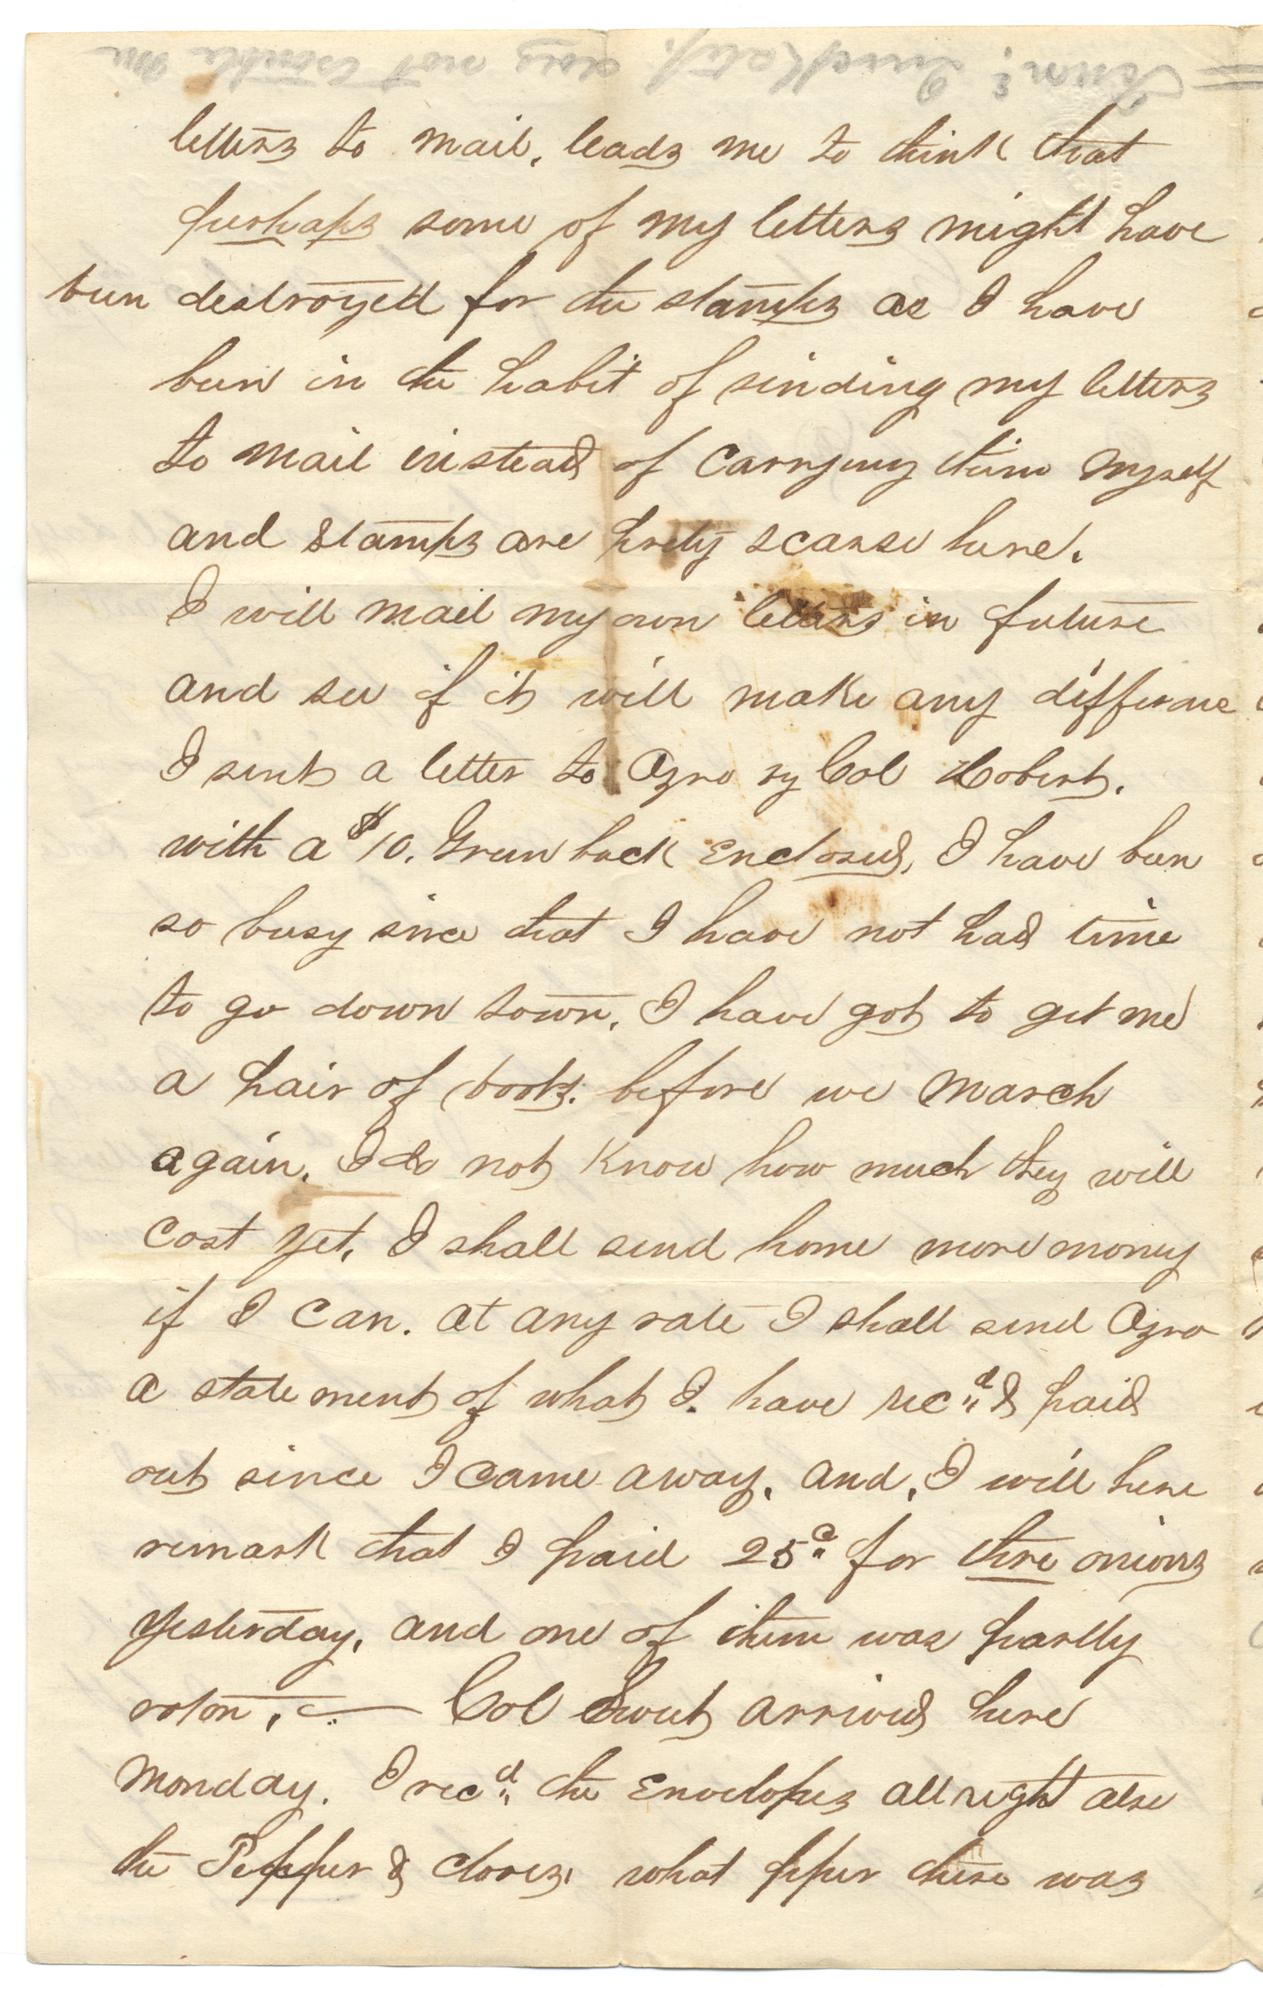 letters to mail, leads me to think that
perhaps some of my letters might have
been destroyed for the stamps as I have
been in the habit of sending my letters
to mail instead of carrying them myself
and stamps are prety scarse here.
I will mail my own letters in future
and see if it will make any difference
I sent a letter to Azro by Col Robert.
with a $10. Green back enclosed, I have been
so busy since that I have not had time
to go down town. I have got to get me
a pair of boots. before we march
again. I do not know how much they will
cost yet. I shall send home more money
if I can. at any rate I shall send Azro
a statement of what I have recd & paid
out since I came away. and, I will here
remark that I paid 25c for three onions
yesterday, and one of them was partly
roton, — Col Sweet arrived here
Monday. I recd the Envelopes all right also
the Pepper & cloves, what pper there was